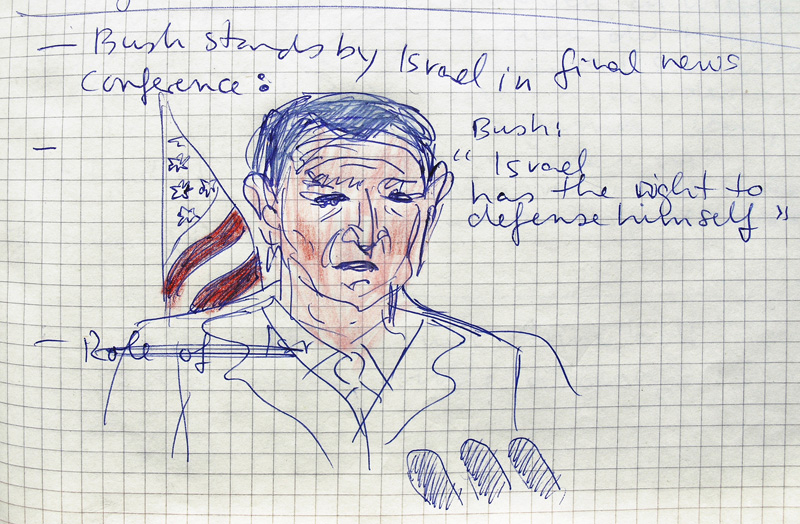 — Bush stands by Israel in final news
conference:
—
Bush:
“ Israel
has the right to
defense himself ”
— Role of